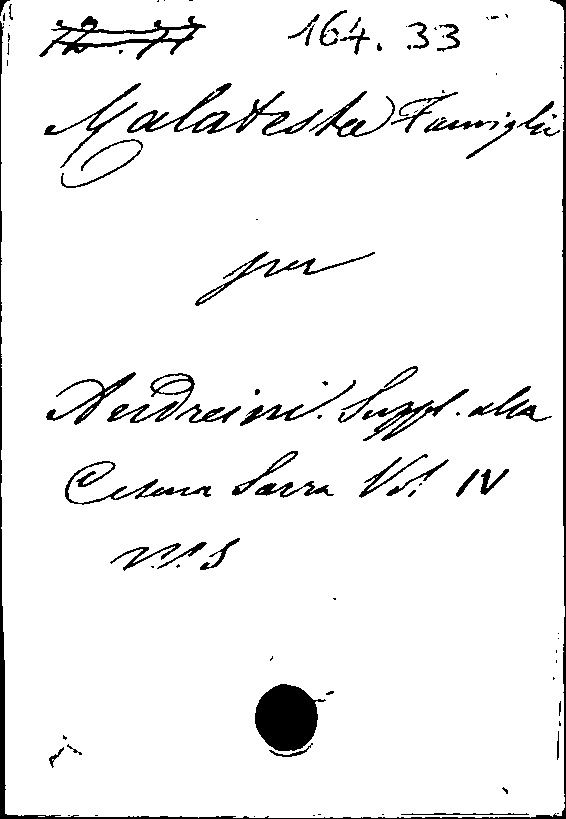 12. 77 164. 33
Malatesta Famiglia
per
Andreini. Suppl. alla
Cesena Sacra Vol IV
MS